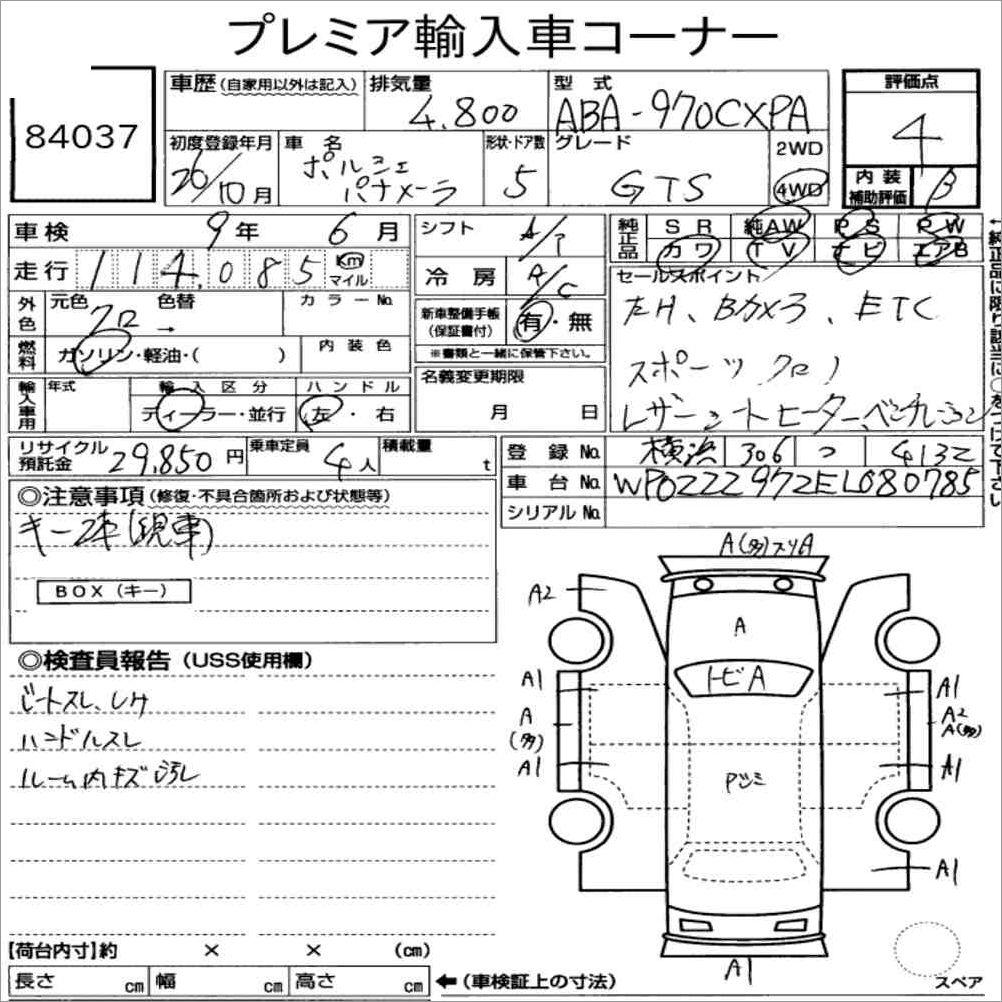 プレミア輸入車コーナー
84037
車歴(自家用以外は記入) 排気量 4.800 型式 ABA-970CXPA 評価点 4
初度登録年月 26/10月 車名 ポルシェ パナメーラ 形状・ドア数 5 グレード GTS 2WD 4WD 内装補助評価 B
車検 9年 6月 シフト A/T 純正品 SR 純AW PS PW
走行 114,085 Km マイル 冷房 A/C カワ TV ナビ エアB
外色 元色 クロ 色替 → カラーNo. 新車整備手帳(保証書付) 有・無
※書類と一緒に保管下さい。
燃料 ガソリン・軽油・( ) 内装色
セールスポイント
左H、Bカメラ、ETC
スポーツクロノ
レザーシートヒーター、ベンチレーション
←純正品に限り該当に○をつけて下さい
輸入車用 年式 輸入区分 ディーラー・並行 ハンドル 左・右
名義変更期限 月 日
リサイクル預託金 29,850円 乗車定員 4人 積載量 t
登録No. 横浜 306 つ 4132
車台No. WP0ZZZ97ZEL080785
シリアルNo.
◎注意事項(修復・不具合箇所および状態等)
キー2本(現車)
BOX(キー)
◎検査員報告(USS使用欄)
シートスレ、シワ
ハンドルスレ
ルーム内キズ汚レ
A(多)スリA
A2
A
トビA
A1
A1
A
(多)
A2
A(多)
A1
A1
Pヅミ
A1
A1
スペア
【荷台内寸】約 × × (cm)
長さ cm 幅 cm 高さ cm ←(車検証上の寸法)